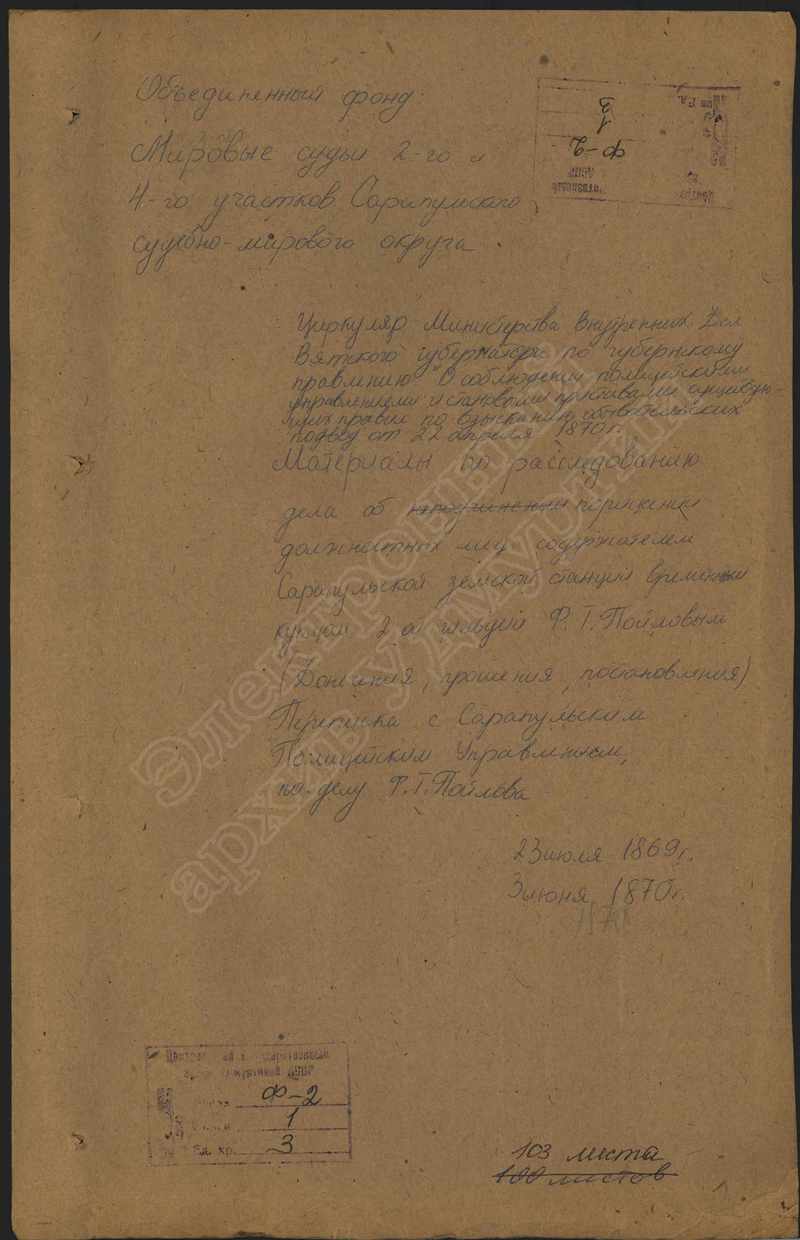 Объединенный фонд
Мировые судьи 2-го и
4-го участков Сарапульского
судебно-мирового округа
Ф-2
1
3
Циркуляр Министерства Внутренних Дел
Вятского губернатора по губернскому
правлению "О соблюдении полицейскими
управлениями и становыми приставами
правил по взысканию обывательских
подвод от 22 апреля 1870 г.
Материалы по расследованию
дела об
должностных лиц содержателем
Сарапульской земской станции временным
купцом 2-ой гильдии Ф.Т.Пойловым
(Донесения, прошения, постановления)
Переписка с Сарапульским
Полицейским Управлением,
по делу Ф.Т.Пойлова
23 июля 1869 г.
3 июня 1870 г.
Электронный
архив Удмуртии
Ф-2
1
Ед. хр. 3
103 листа
100 листов